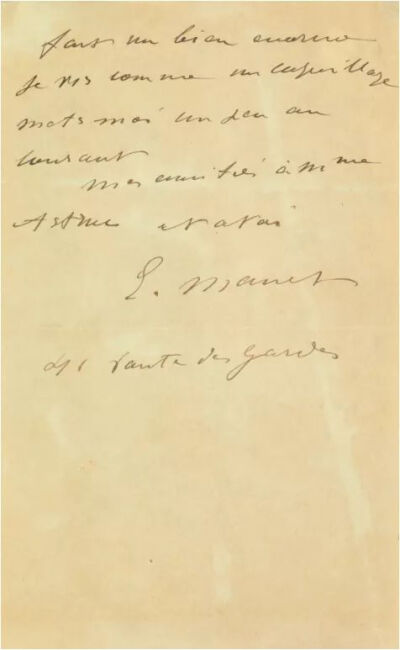 un bien énorme
je vis comme un coquillage
mets moi un peu au
courant
mes amitiés à Mme
Astruc et à toi
E. Manet
41 route des Gardes